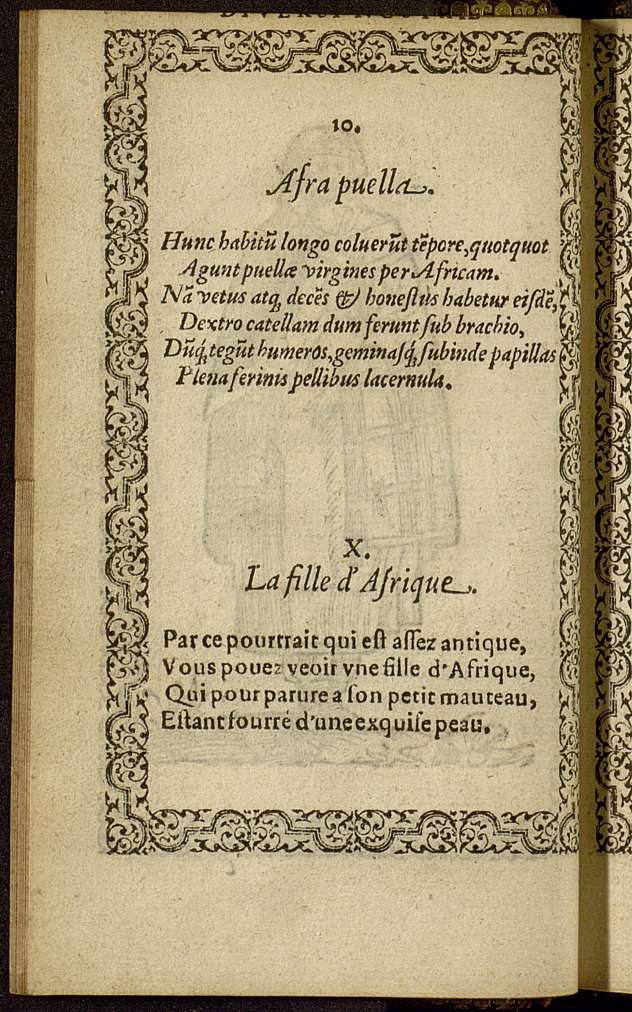 10.
Afra puella.
Hunc habitū longo coluerūt tēpore, quotquot
Agunt puellæ virgines per Africam.
Nā vetus atq; decēs & honestus habetur eisdē,
Dextro catellam dum ferunt sub brachio,
Dūq; tegūt humeros, geminasq; subinde papillas
Plena ferinis pellibus lacernula.
X.
La fille d'Afrique.
Par ce pourtrait qui est assez antique,
Vous pouez veoir vne fille d'Afrique,
Qui pour parure a son petit manteau,
Estant fourré d'une exquise peau.